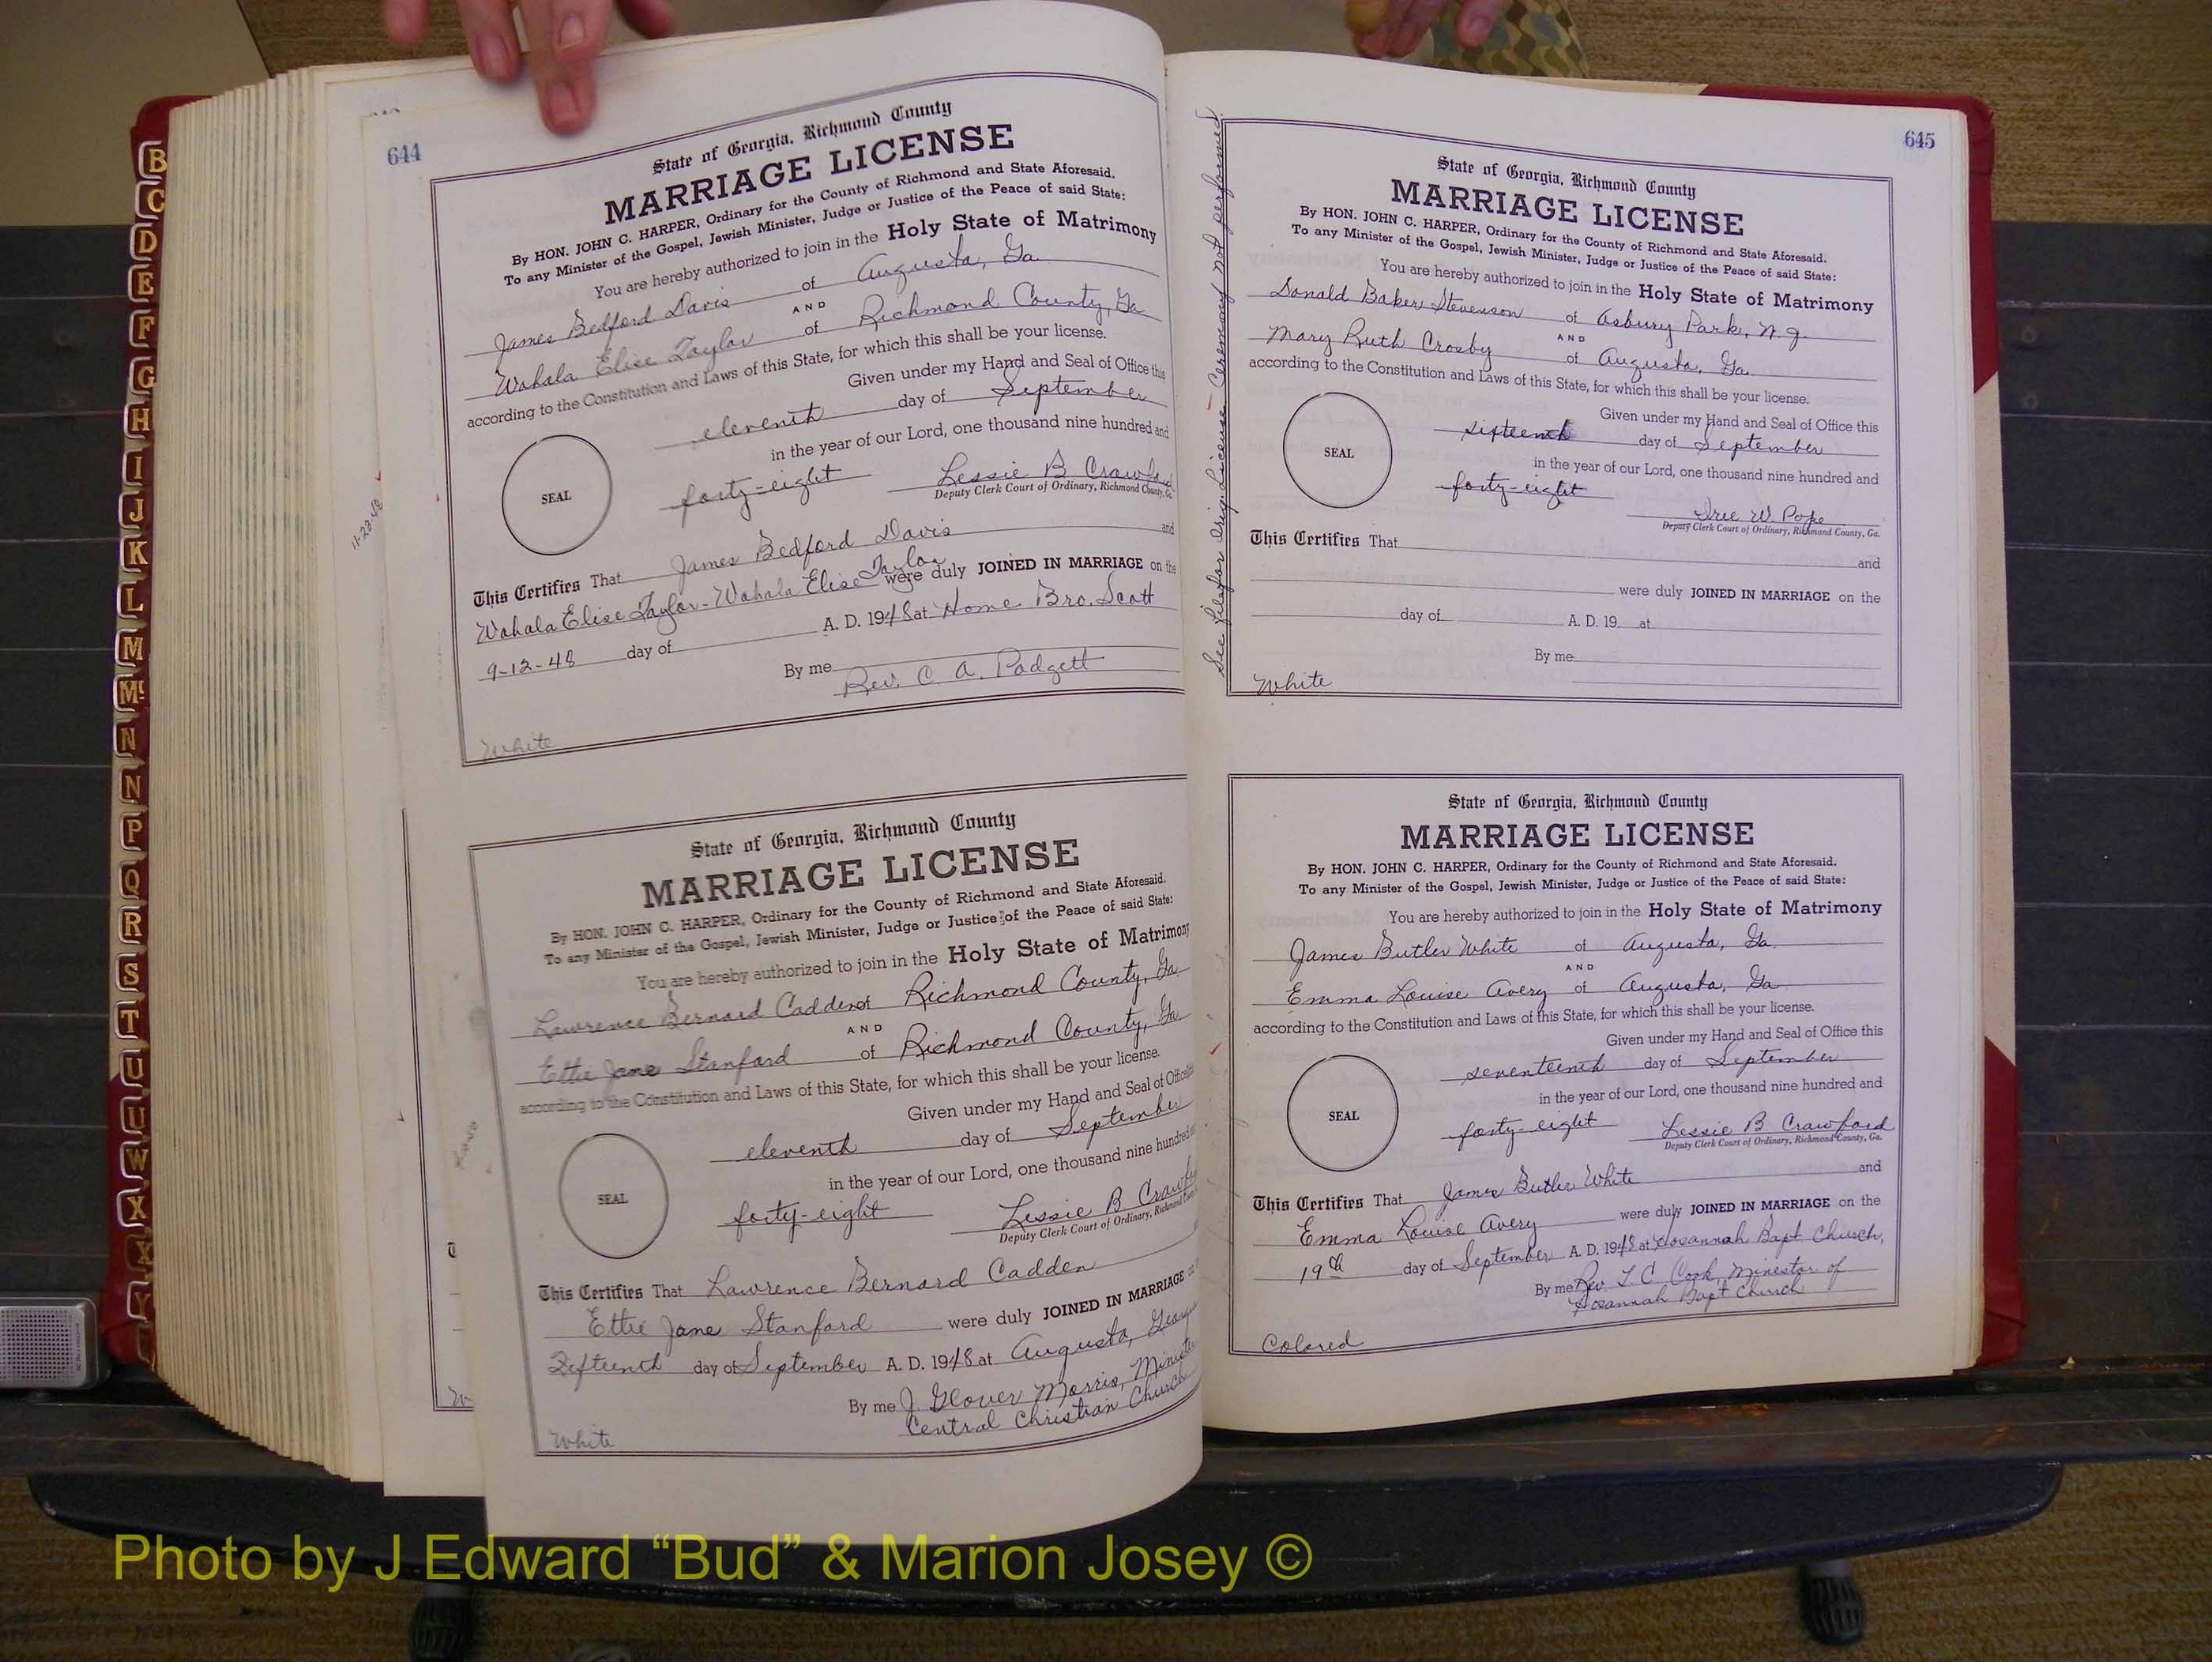 B
C
D
E
F
G
H
I
J
K
L
M
Mc
N
N
P
Q
R
S
T
U
U
W
X
X
Y
644
State of Georgia, Richmond County
MARRIAGE LICENSE
By HON. JOHN C. HARPER, Ordinary for the County of Richmond and State Aforesaid.
To any Minister of the Gospel, Jewish Minister, Judge or Justice of the Peace of said State:
You are hereby authorized to join in the Holy State of Matrimony
James Bedford Davis of Augusta, Ga.
AND
Wahala Elise Taylor of Richmond County, Ga
according to the Constitution and Laws of this State, for which this shall be your license.
Given under my Hand and Seal of Office this
eleventh day of September
in the year of our Lord, one thousand nine hundred and
SEAL
forty-eight Lessie B Crawford
Deputy Clerk Court of Ordinary, Richmond County, Ga.
This Certifies That James Bedford Davis and
Wahala Elise Taylor - Wahala Elise Taylor were duly JOINED IN MARRIAGE on the
9-12-48 day of A. D. 1948 at Home Bro. Scott
By me Rev. C. A. Padgett
White
11-23-48
State of Georgia, Richmond County
MARRIAGE LICENSE
By HON. JOHN C. HARPER, Ordinary for the County of Richmond and State Aforesaid.
To any Minister of the Gospel, Jewish Minister, Judge or Justice of the Peace of said State:
You are hereby authorized to join in the Holy State of Matrimony
Lawrence Bernard Cadden of Richmond County, Ga.
AND
Ettie Jane Stanford of Richmond County, Ga.
according to the Constitution and Laws of this State, for which this shall be your license.
Given under my Hand and Seal of Office
eleventh day of September
in the year of our Lord, one thousand nine hundred
SEAL
forty-eight Lessie B Crawford
Deputy Clerk Court of Ordinary, Richmond
This Certifies That Lawrence Bernard Cadden
Ettie Jane Stanford were duly JOINED IN MARRIAGE
Fifteenth day of September A. D. 1948 at Augusta, Georgia
By me J. Glover Morris, Minister
Central Christian Church
White
645
See File for Orig. License - Ceremony not performed.
State of Georgia, Richmond County
MARRIAGE LICENSE
By HON. JOHN C. HARPER, Ordinary for the County of Richmond and State Aforesaid.
To any Minister of the Gospel, Jewish Minister, Judge or Justice of the Peace of said State:
You are hereby authorized to join in the Holy State of Matrimony
Donald Baker Stevenson of Asbury Park, N. J.
AND
Mary Ruth Crosby of Augusta, Ga.
according to the Constitution and Laws of this State, for which this shall be your license.
Given under my Hand and Seal of Office this
sixteenth day of September
in the year of our Lord, one thousand nine hundred and
SEAL
forty-eight
W. Pope
Deputy Clerk Court of Ordinary, Richmond County, Ga.
This Certifies That
and
were duly JOINED IN MARRIAGE on the
day of A. D. 19 at
By me
White
State of Georgia, Richmond County
MARRIAGE LICENSE
By HON. JOHN C. HARPER, Ordinary for the County of Richmond and State Aforesaid.
To any Minister of the Gospel, Jewish Minister, Judge or Justice of the Peace of said State:
You are hereby authorized to join in the Holy State of Matrimony
James Butler White of Augusta, Ga.
AND
Emma Louise Avery of Augusta, Ga.
according to the Constitution and Laws of this State, for which this shall be your license.
Given under my Hand and Seal of Office this
seventeenth day of September
in the year of our Lord, one thousand nine hundred and
SEAL
forty-eight Lessie B. Crawford
Deputy Clerk Court of Ordinary, Richmond County, Ga.
and
This Certifies That James Butler White
Emma Louise Avery were duly JOINED IN MARRIAGE on the
19th day of September A. D. 1948 at Hosannah Bapt Church,
By me Rev. T. C. Cook, Minestor of
Hosannah Bapt Church
Colored
Photo by J Edward “Bud” & Marion Josey ©